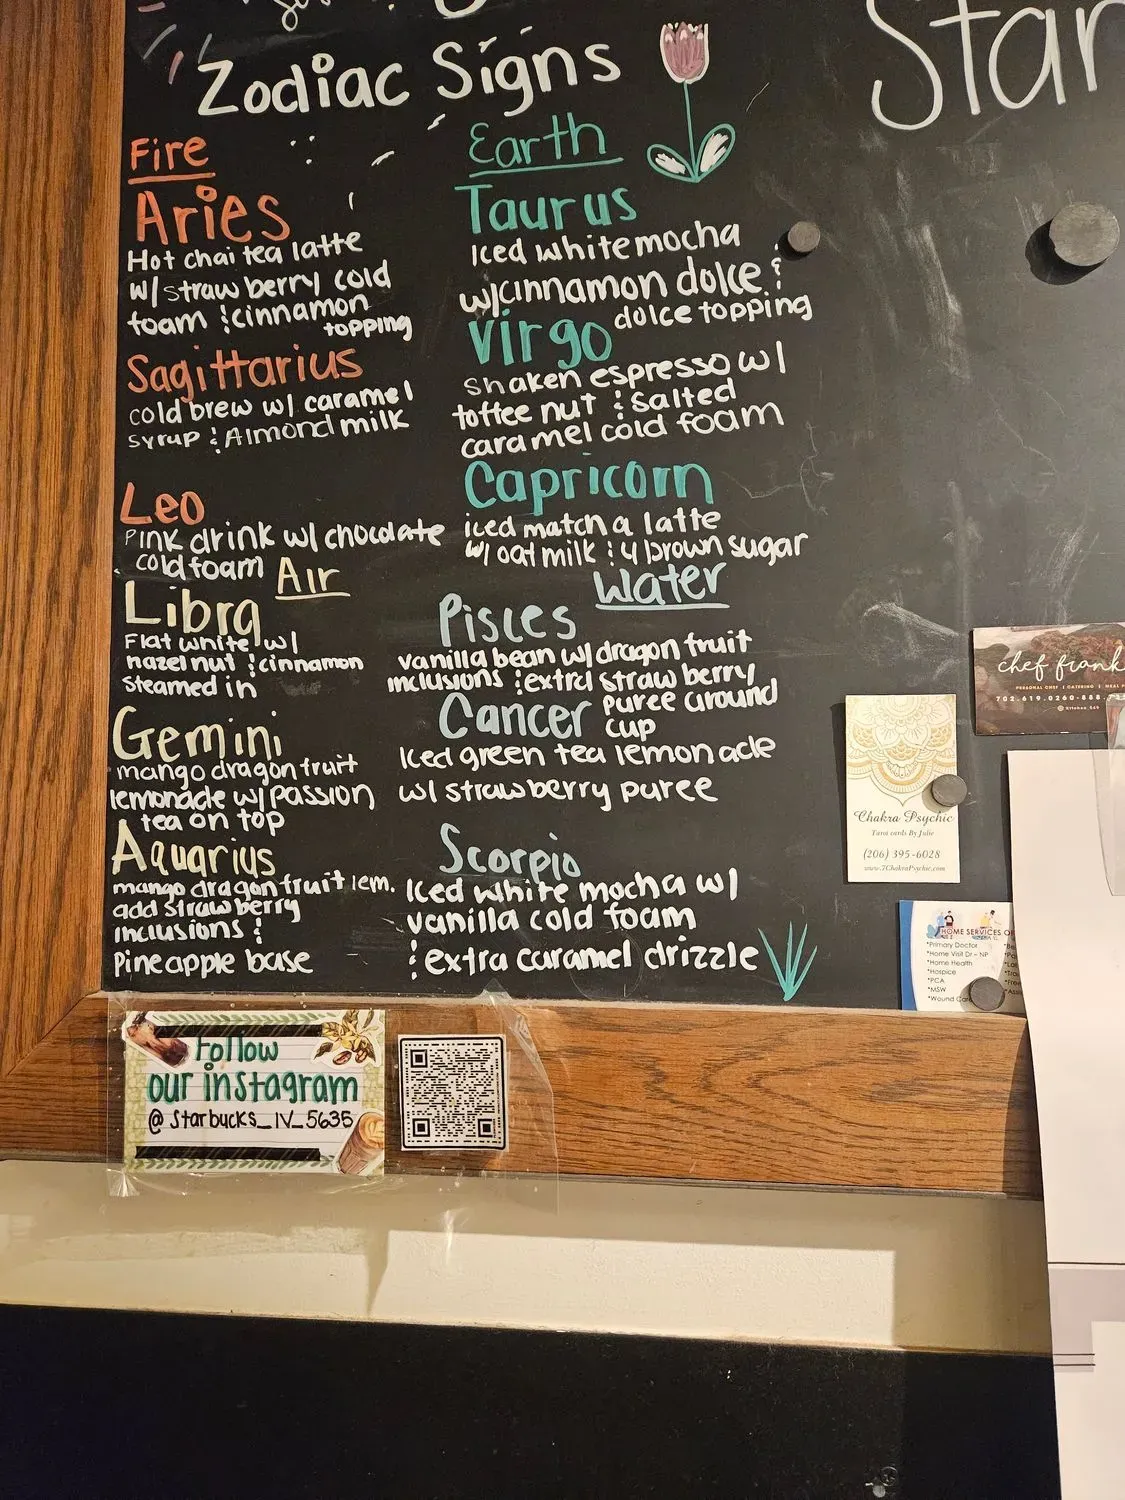 Zodiac Signs
Star
Fire
Aries
Hot chai tea latte
w/ strawberry cold
foam & cinnamon
topping
Sagittarius
cold brew w/ caramel
syrup & Almond milk
Leo
Pink drink w/ chocolate
cold foam
Earth
Taurus
Iced white mocha
w/cinnamon dolce &
dolce topping
Virgo
shaken espresso w/
toffee nut & salted
caramel cold foam
Capricorn
iced matcha latte
w/ oat milk & 4 brown sugar
Air
Libra
Flat white w/
hazelnut & cinnamon
steamed in
Gemini
mango dragonfruit
lemonade w/ passion
tea on top
Aquarius
mango dragonfruit lem.
add strawberry
inclusions &
Pineapple base
Water
Pisces
vanilla bean w/ dragon fruit
inclusions & extra strawberry
puree around
cup
Cancer
Iced green tea lemonade
w/ strawberry puree
Scorpio
Iced white mocha w/
vanilla cold foam
& extra caramel drizzle
chef frank
PERSONAL CHEF | CATERING | MEAL P
702-619-0260-888-7
Chakra Psychic
Tarot cards By Julie
(206) 395-6028
www.7ChakraPsychic.com
HOME SERVICES OF
*Primary Doctor
*Home Visit Dr - NP
*Home Health
*Hospice
*PCA
*MSW
*Wound Care
Follow
our instagram
@Starbucks_IV_5635